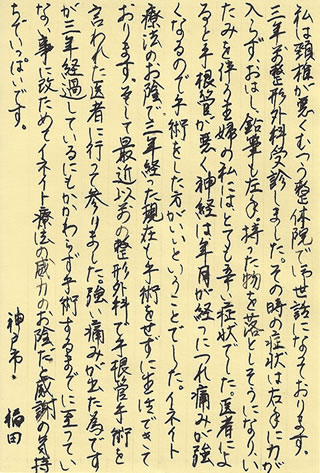 私は頚椎が悪くむつう整体院でお世話になっております。
三年前整形外科受診しました。その時の症状は右手に力が
入らず、おはし、鉛筆も左手。持った物を落としそうになり、い
たみを伴う主婦の私にはとても辛い症状でした。医者によ
ると手根管が悪く神経は年月が経つにつれ痛みが強
くなるので手術をした方がいいということでした。イネイト
療法のお陰で三年経った現在も手術をせずに生活できて
おります。そして最近以前の整形外科で手根管手術を
言われた医者に行って参りました。強い痛みが出た為です
が三年経過しているにもかかわらず手術するまでに至ってい
ない事に改ためてイネイト療法の威力のお陰だと感謝の気持
ちでいっぱいです。
神戸市 稲田